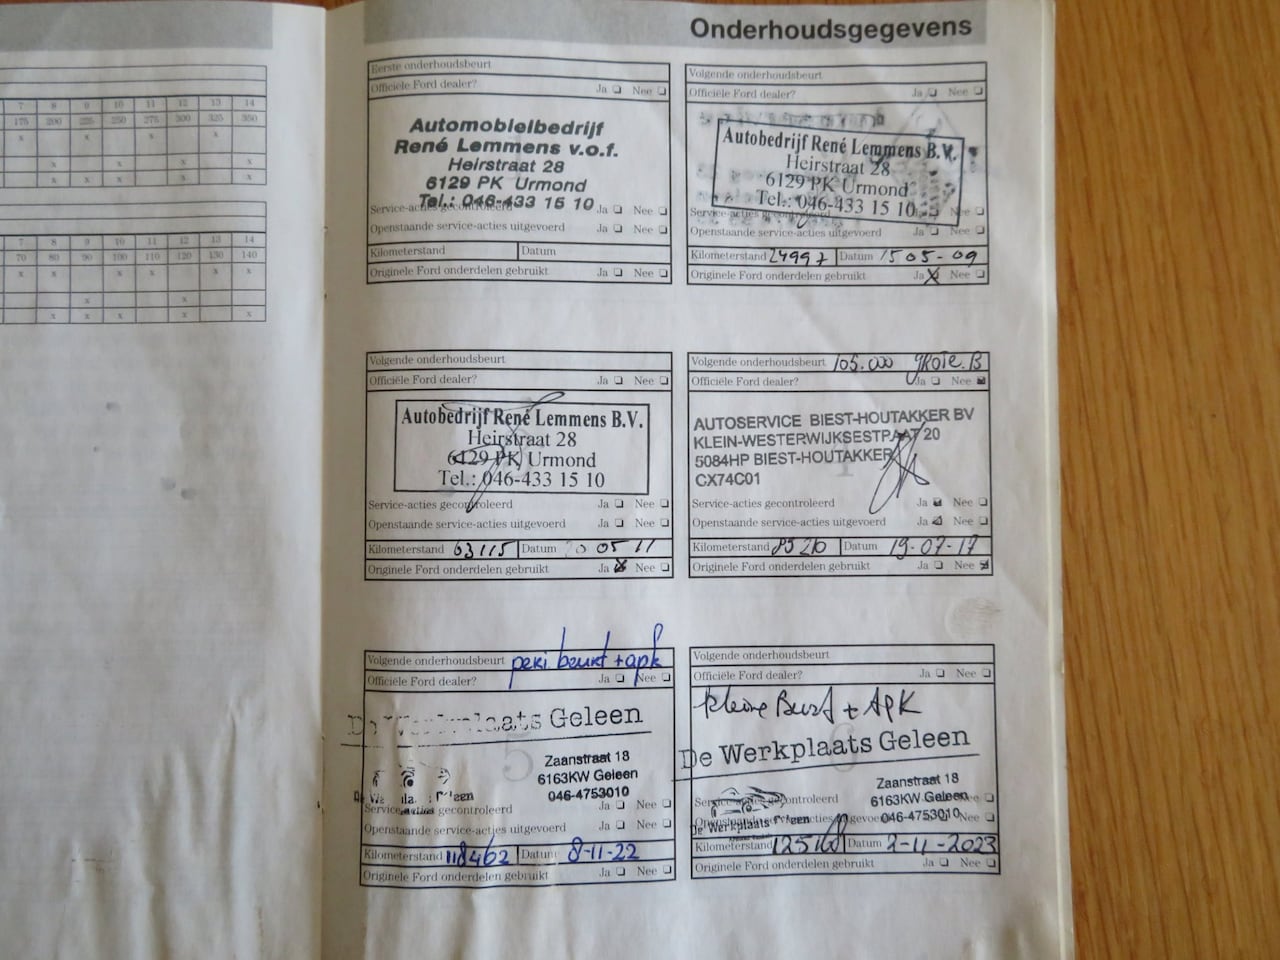 Onderhoudsgegevens
7 8 9 10 11 12 13 14
175 200 225 250 275 300 325 350
x x x x
x x x x
x x x x x
7 8 9 10 11 12 13 14
70 80 90 100 110 120 130 140
x x x x x x
x x
x x x x x
Eerste onderhoudsbeurt
Officiële Ford dealer? Ja Nee
Automobielbedrijf
René Lemmens v.o.f.
Heirstraat 28
6129 PK Urmond
Tel.: 046-433 15 10
Service-acties gecontroleerd Ja Nee
Openstaande service-acties uitgevoerd Ja Nee
Kilometerstand Datum
Originele Ford onderdelen gebruikt Ja Nee
Volgende onderhoudsbeurt
Officiële Ford dealer? Ja Nee
Autobedrijf René Lemmens B.V.
Heirstraat 28
6129 PK Urmond
Tel.: 046-433 15 10
Service-acties gecontroleerd Ja Nee
Openstaande service-acties uitgevoerd Ja Nee
Kilometerstand 24997 Datum 15 05-09
Originele Ford onderdelen gebruikt Ja Nee
Volgende onderhoudsbeurt
Officiële Ford dealer? Ja Nee
Autobedrijf René Lemmens B.V.
Heirstraat 28
6129 PK Urmond
Tel.: 046-433 15 10
Service-acties gecontroleerd Ja Nee
Openstaande service-acties uitgevoerd Ja Nee
Kilometerstand 63115 Datum 20 05 11
Originele Ford onderdelen gebruikt Ja Nee
Volgende onderhoudsbeurt 105.000 grote B
Officiële Ford dealer? Ja Nee
AUTOSERVICE BIEST-HOUTAKKER BV
KLEIN-WESTERWIJKSESTPAAT 20
5084HP BIEST-HOUTAKKER
CX74C01
Service-acties gecontroleerd Ja Nee
Openstaande service-acties uitgevoerd Ja Nee
Kilometerstand Datum 19-07-17
Originele Ford onderdelen gebruikt Ja Nee
Volgende onderhoudsbeurt beurt + apk
Officiële Ford dealer? Ja Nee
De Werkplaats Geleen
Zaanstraat 18
6163KW Geleen
046-4753010
Service-acties gecontroleerd Ja Nee
Openstaande service-acties uitgevoerd Ja Nee
Kilometerstand 118462 Datum 8-11-22
Originele Ford onderdelen gebruikt Ja Nee
Volgende onderhoudsbeurt
Officiële Ford dealer? Ja Nee
kleine Beurt + APK
De Werkplaats Geleen
Zaanstraat 18
6163KW Geleen
046-4753010
De Werkplaats Geleen
Service-acties gecontroleerd Nee
Openstaande service-acties uitgevoerd
Kilometerstand Datum 2-11-2023
Originele Ford onderdelen gebruikt Ja Nee